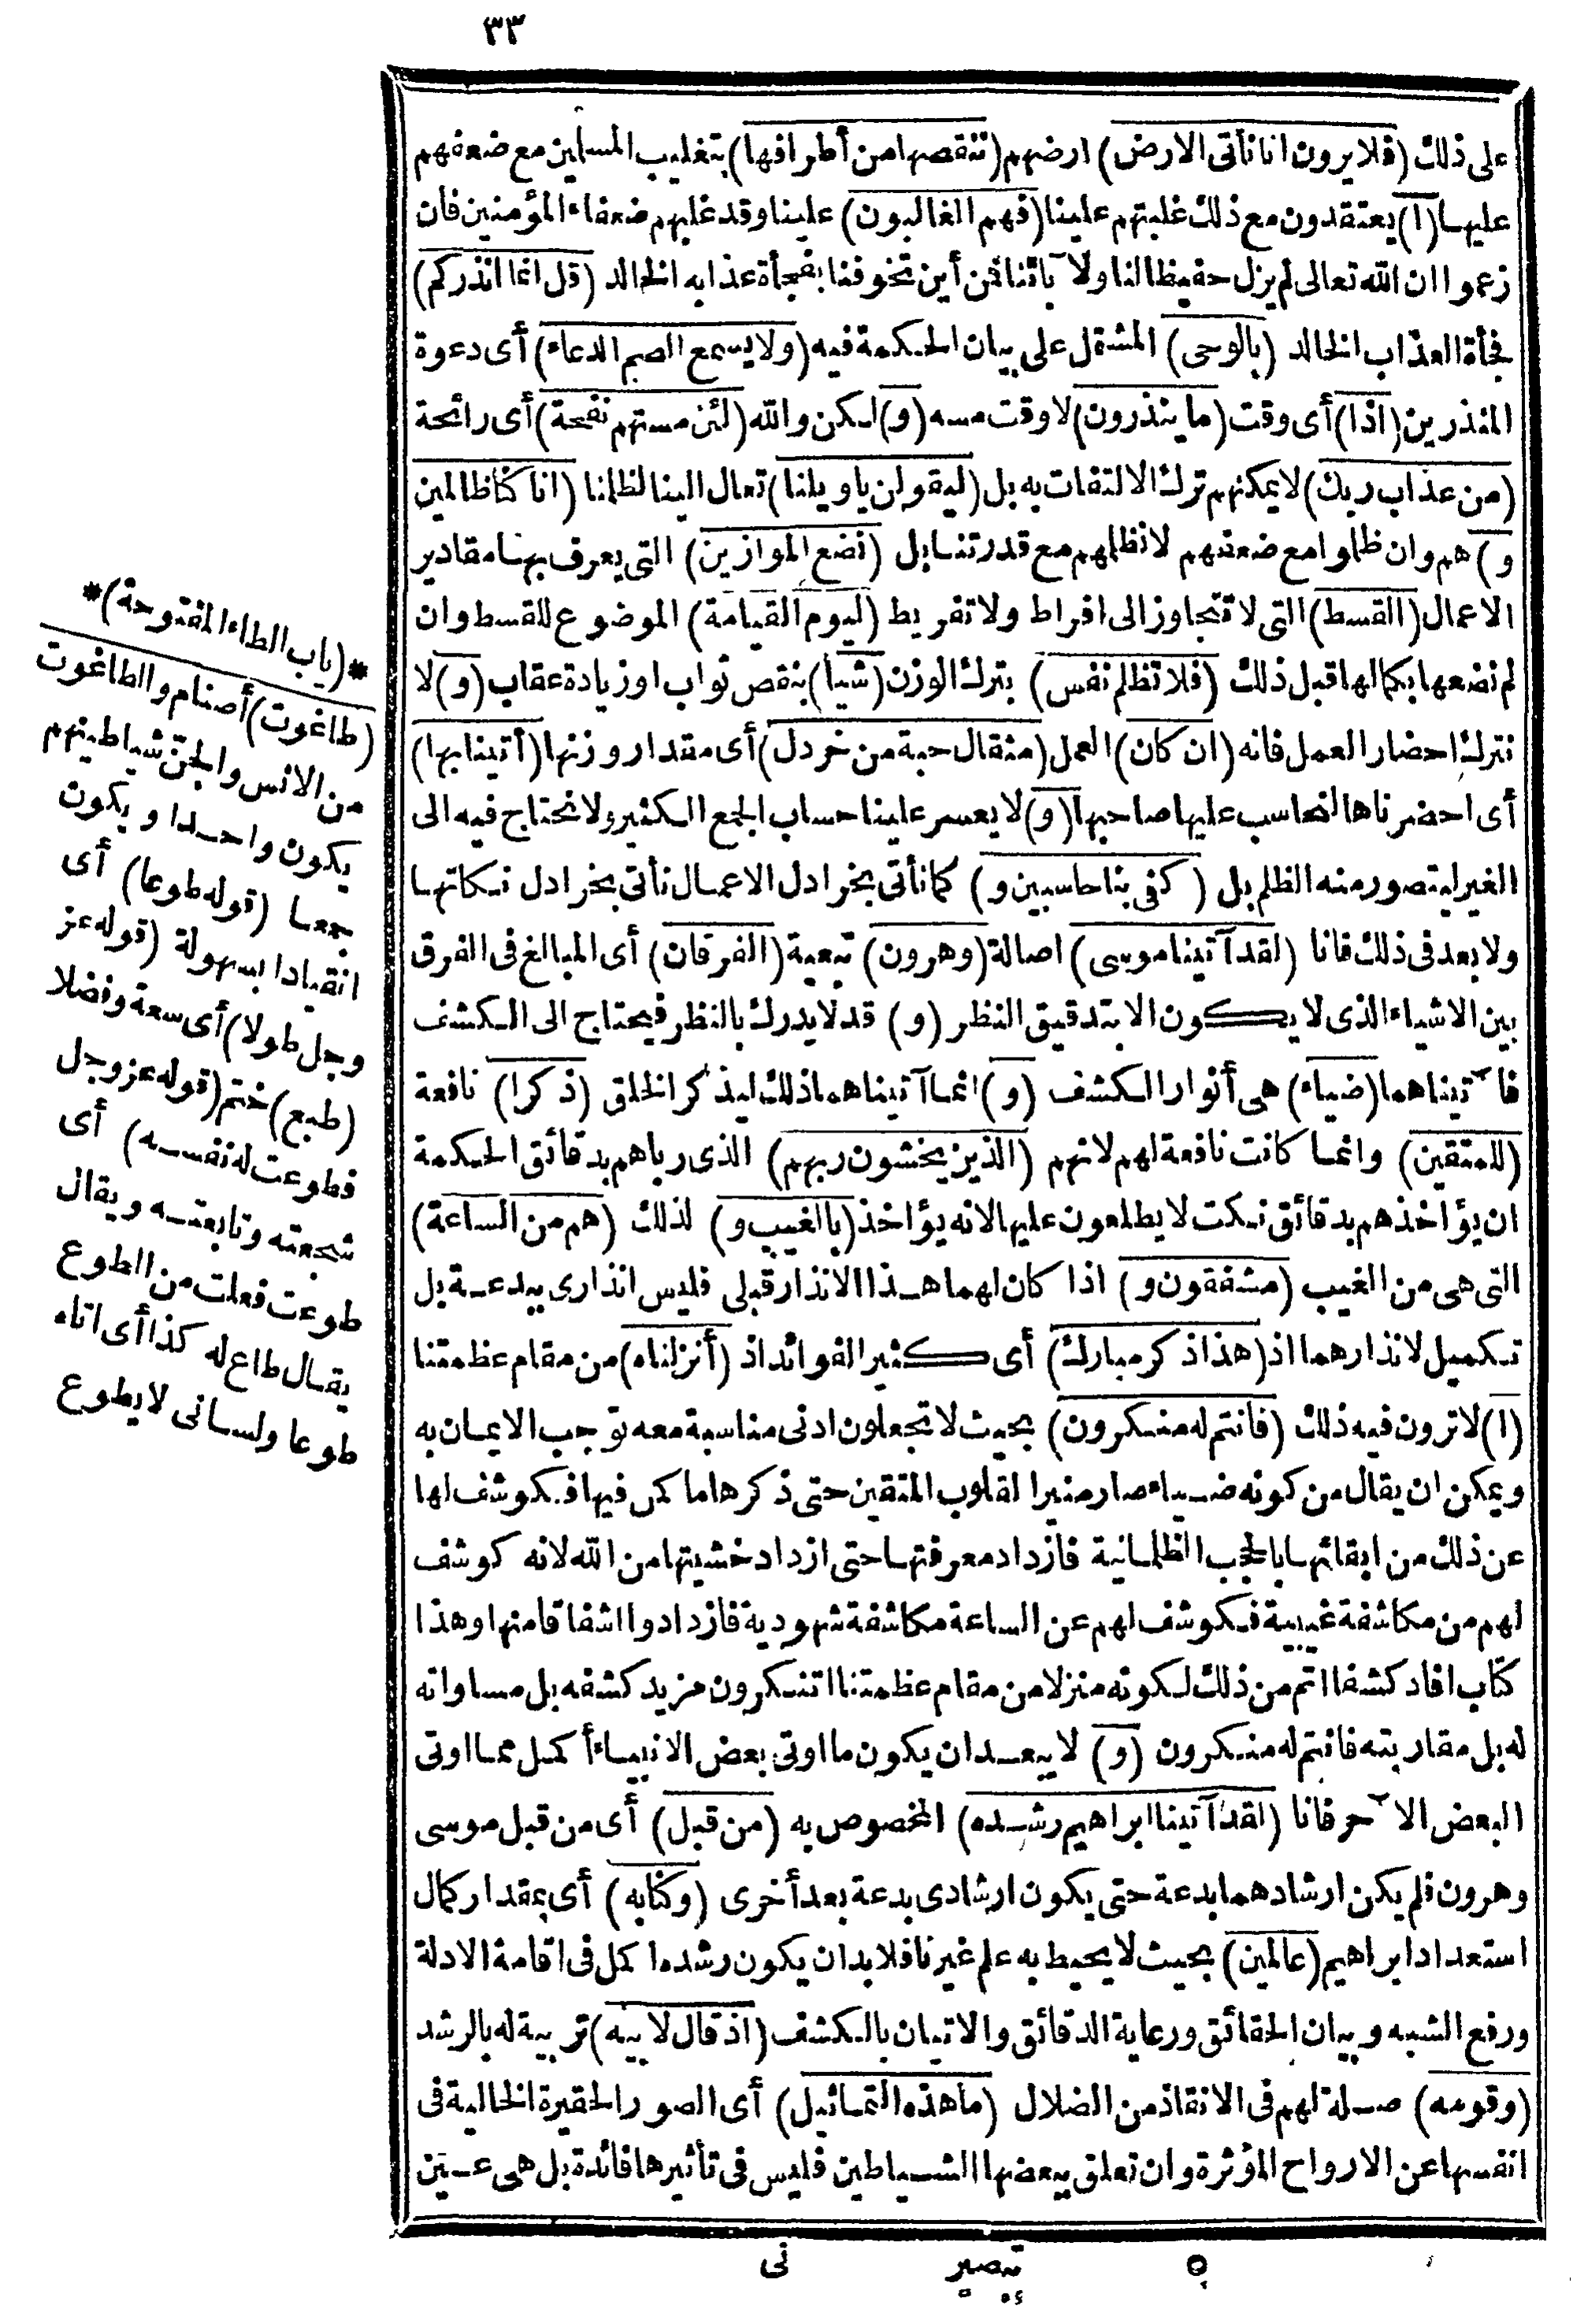 ٣٣
على ذلك (فلا يرون انا نأتى الارض) ارضهم (ننقصها من أطرافها) بتغليب المسلمين مع ضعفهم
عليها (ا) يعتقدون مع ذلك غلبتهم علينا (فهم الغالبون) علينا وقد غلبهم ضعفاء المؤمنين فان
زعموا ان الله تعالى لم يزل حفيظا لنا ولا آبائنا فن أين تخوفنا بفجأة عذابه الخالد (قل انما انذركم)
فجأة العذاب الخالد (بالوحى) المشتمل على بيان الحكمة فيه (ولا يسمع الصم الدعاء) أى دعوة
المنذرين (اذا) أى وقت (ما ينذرون) لا وقت مسه (و) لكن والله (لئن مستهم نفحة) أى رائحة
(من عذاب ربك) لا يمكنهم ترك الالتفات به بل (ليقولن يا ويلنا) تعال الينا لظلمنا (انا كنا ظالمين
و) هم وان ظلموا مع ضعفهم لا نظلمهم مع قدرتنا بل (نضع الموازين) التى يعرف بها مقادير
الاعمال (القسط) التى لا تتجاوز الى افراط ولا تفريط (ليوم القيامة) الموضوع للقسط وان
لم نضعها بكمالها قبل ذلك (فلا تظلم نفس) بترك الوزن (شيأ) بنقص ثواب او زيادة عقاب (و) لا
نترك احضار العمل فانه (ان كان) العمل (مثقال حبة من خردل) أى مقدار وزنها (أتينا بها)
أى احضرناها لنحاسب عليها صاحبها (و) لا يعسر علينا حساب الجمع الكثير ولا نحتاج فيه الى
الغير ليتصور منه الظلم بل (كفى بنا حاسبين و) كما نأتى بخرادل الاعمال نأتى بخرادل نكاتها
ولا بعد فى ذلك فانا (لقد آتينا موسى) اصالة (وهرون) تبعية (الفرقان) أى المبالغ فى الفرق
بين الاشياء الذى لا يكون الا بتدقيق النظر (و) قد لا يدرك بالنظر فيحتاج الى الكشف
فآتيناهما (ضياء) هى أنوار الكشف (و) انما آتيناهما ذلك ليذكر الخلق (ذكرا) نافعة
(للمتقين) وانما كانت نافعة لهم لانهم (الذين يخشون ربهم) الذى رباهم بدقائق الحكمة
ان يؤاخذهم بدقائق نكت لا يطلعون عليها لانه يؤاخذ (بالغيب و) لذلك (هم من الساعة)
التى هى من الغيب (مشفقون و) اذا كان لهما هذا الانذار قبلى فليس انذارى ببدعة بل
تكميل لانذارهما اذ (هذا ذكر مبارك) أى كثير الفوائد اذ (أنزلناه) من مقام عظمتنا
(ا) لا ترون فيه ذلك (فانتم له منكرون) بحيث لا تجعلون ادنى مناسبة معه توجب الايمان به
ويمكن ان يقال من كونه ضياء صار منيرا لقلوب المتقين حتى ذكرها ما كمن فيها فكوشف لها
عن ذلك من ابقائها بالحجب الظلمانية فازداد معرفتها حتى ازداد خشيتها من الله لانه كوشف
لهم من مكاشفة غيبية فكوشف لهم عن الساعة مكاشفة شهودية فازدادوا اشفاقا منها وهذا
كتاب افاد كشفا اتم من ذلك لكونه منزلا من مقام عظمتنا اتنكرون مزيد كشفه بل مساواته
له بل مقاربته فانتم له منكرون (و) لا يبعد ان يكون ما اوتى بعض الانبياء أكمل مما اوتى
البعض الآخر فانا (لقد آتينا ابراهيم رشده) المخصوص به (من قبل) أى من قبل موسى
وهرون فلم يكن ارشادهما بدعة حتى يكون ارشادى بدعة بعد أخرى (وكنا به) أى بمقدار كمال
استعداد ابراهيم (عالمين) بحيث لا يحيط به علم غيرنا فلا بد ان يكون رشده اكمل فى اقامة الادلة
ورفع الشبه وبيان الحقائق ورعاية الدقائق والاتيان بالكشف (اذ قال لابيه) تربية له بالرشد
(وقومه) صلة لهم فى الانقاذ من الضلال (ما هذه التماثيل) أى الصور الحقيرة الخالية فى
انفسها عن الارواح المؤثرة وان تعلق ببعضها الشياطين فليس فى تأثيرها فائدة بل هى عين
*(باب الطاء المفتوحة)*
(طاغوت) أصنام والطاغوت
من الانس والجن شياطينهم
يكون واحدا ويكون
جمعا (قوله طوعا) أى
انقيادا بسهولة (قوله عز
وجل طولا) أى سعة وفضلا
(طبع) ختم (قوله عز وجل
فطوعت له نفسه) أى
شجعته وتابعته ويقال
طوعت فعلت من الطوع
يقال طاع له كذا أى اتاه
طوعا ولسانى لا يطوع
٥ تبصير نى